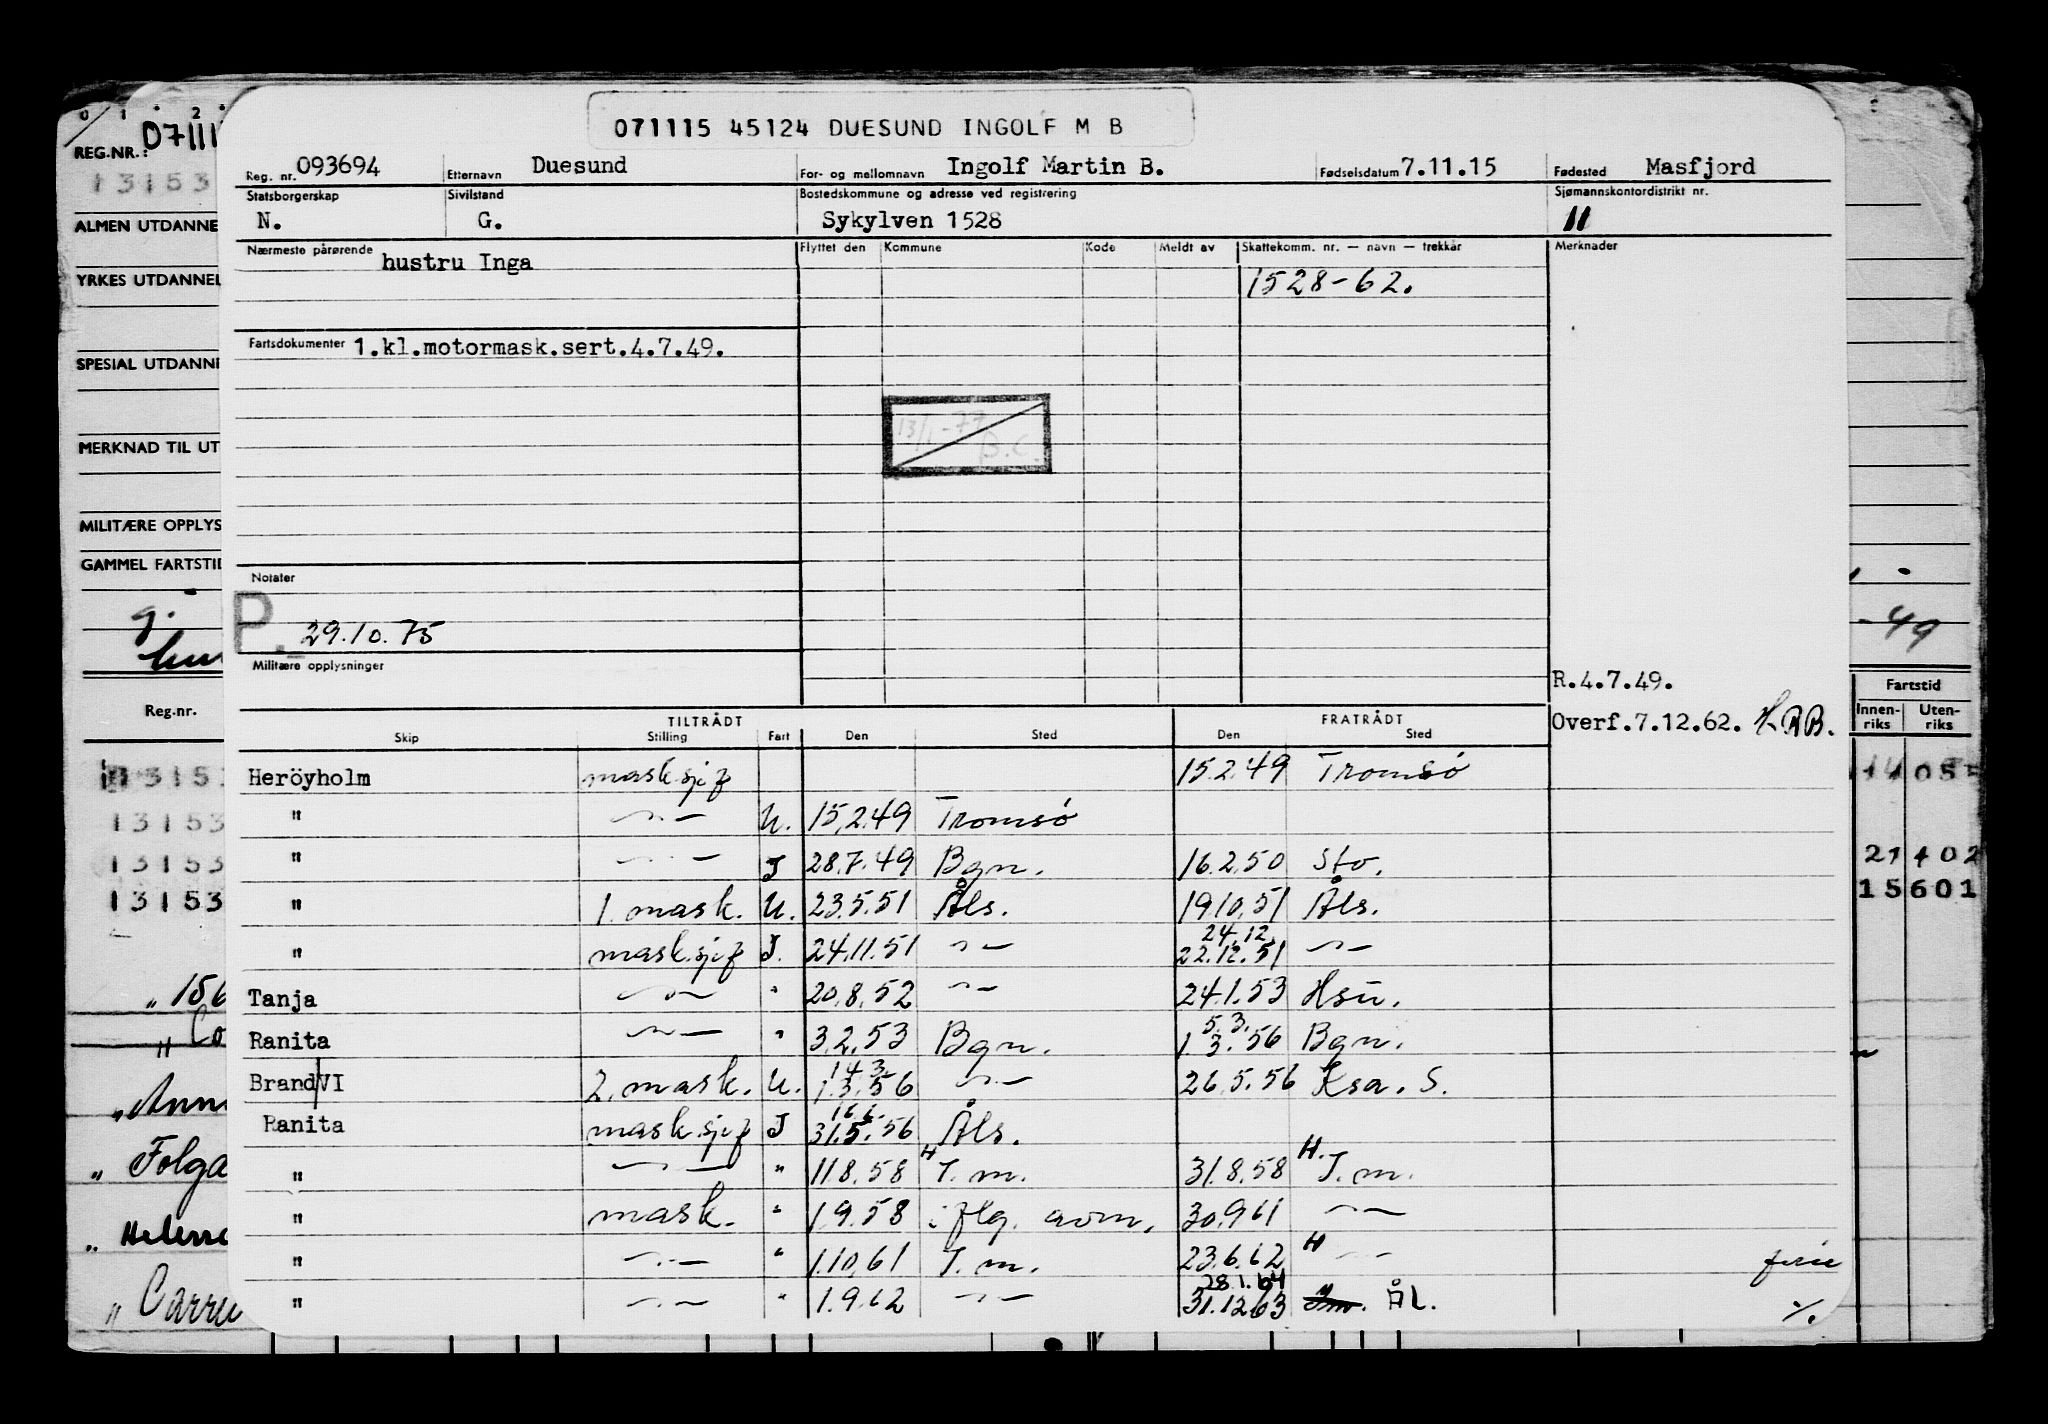 071115 45124 DUESUND INGOLF M B
Reg. nr. 093694 Etternavn Duesund For- og mellomnavn Ingolf Martin B. Fødselsdatum 7.11.15 Fødested Masfjord
Statsborgerskap Sivilstand Bostedskommune og adresse ved registrering Sjømannskontordistrikt nr.
N. G. Sykylven 1528 11
Nærmeste pårørende hustru Inga Flyttet den Kommune Kode Meldt av Skattekomm. nr. — navn — trekkår Merknader
1528-62.
Fartsdokumenter 1.kl.motormask.sert.4.7.49.
13/1-77
B.C.
Notater
P. 29.10.75
Militære opplysninger
R.4.7.49.
Overf.7.12.62.
TILTRÅDT FRATRÅDT
Skip Stilling Fart Den Sted Den Sted
Heröyholm mask.sjef 15.2.49 Tromsø
" —~— U. 15.2.49 Tromsø
" —~— J 28.7.49 Bgn. 16.2.50 Sto.
" 1. mask. U. 23.5.51 Åls. 19.10.51 Åls.
24.12.
" mask.sjef J. 24.11.51 —~— 22.12.51 —~—
Tanja —~— " 20.8.52 —~— 24.1.53 Hsu.
5.3.
Ranita —~— " 3.2.53 Bgn. 1.3.56 Bgn.
14.3.
Brand VI 2. mask. U. 1.3.56 —~— 26.5.56 Ksa. S.
16.6.
Ranita mask.sjef J 31.5.56 Åls.
" —~— " 11.8.58 H J.m. 31.8.58 H. J.m.
" mask. " 1.9.58 iflg. aom. 30.9.61 —~—
" —~— " 1.10.61 J.m. 23.6.62 H —~— ferie
28.1.64
" —~— " 1.9.62 —~— 31.12.63 ÅL. ./.
0 1 2
REG.NR.: 07111
13153
ALMEN UTDANNE
YRKES UTDANNEL
SPESIAL UTDANNE
MERKNAD TIL UT
MILITÆRE OPPLYS
GAMMEL FARTSTID
g.
Reg.nr.
1315
13153
13153
13153
" 156
" Co
" Anne
" Folga
" Helene
" Carru
-49
Fartstid
Innen-riks Uten-riks
21402
15601